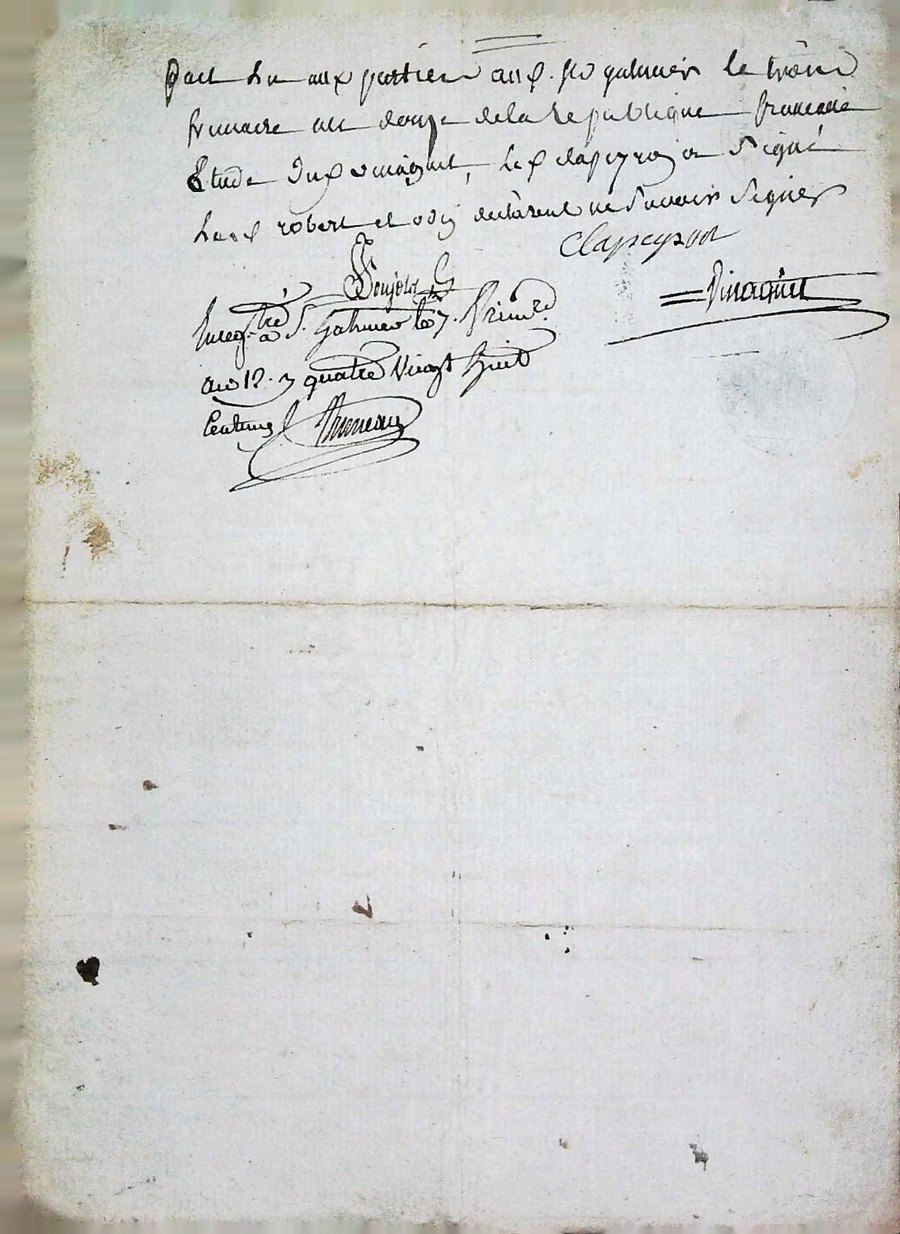 fait lu aux parties aud. st galmier le trois
frimaire an douze de la république francaise
Etude dud vinagut, led clapeyron a signé
Lesd robert et odij declarent ne savoir signer
Clapeyron
Soujols
Enreg.tré à S. Galmier le 7. frim.e
an 12. quatre Vingt huit
Centimes